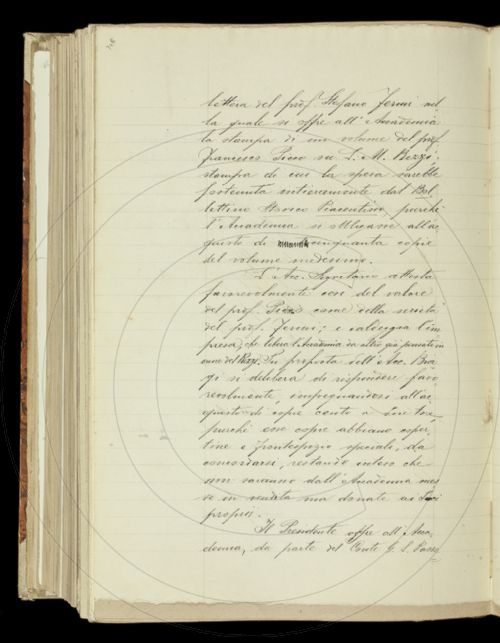 lettera del prof. Stefano Fermi nel
la quale si offre all'Accademia
la stampa di un volume del prof.
Francesco Picco su L. M. Rezzi;
stampa di cui la spesa sarebbe
sostenuta interamente dal Bol
lettino Storico Piacentino, purché
l'Accademia si obbligasse all'ac
quisto di cinquanta copie
del volume medesimo.
L'Acc. Segretario attesta
favorevolmente così del valore
del prof. Picco come della serietà
del prof. Fermi; e caldeggia l'im
presa, che libera l'Accademia da altro già pensato in
onore del Rezzi. Su proposta dell'Acc. Bia
gi si delibera di rispondere favo
revolmente, impegnandosi all'ac
quisto di copie cento a lire tre,
purché esse copie abbiano coper
tine e frontespizio speciale, da
concordarsi, restando inteso che
non saranno dall'Accademia mes
se in vendita ma donate ai Soci
proprii.
Il Presidente offre all'Acca
demia, da parte del Conte G. L. Passe